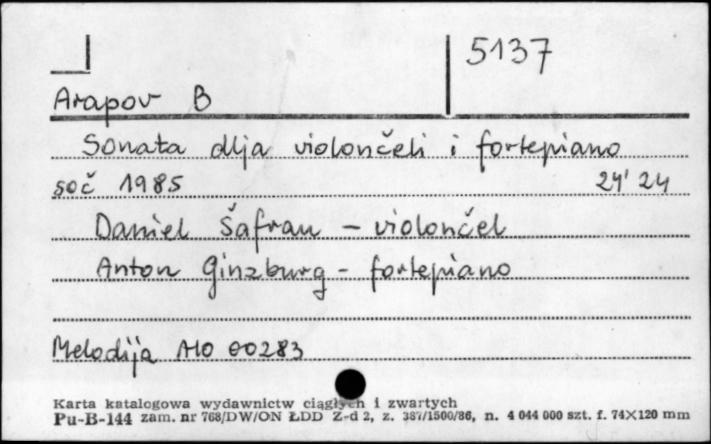 5137
Arapov B
Sonata dlja violončeli i fortepiano
soč 1985 24'24
Daniel Šafran - violončel
Anton Ginzburg - fortepiano
Melodija A10 00283
Karta katalogowa wydawnictw ciągłych i zwartych
Pu-B-144 zam. nr 768/DW/ON ŁDD Z-d 2, z. 387/1500/86, n. 4 044 000 szt. f. 74X120 mm